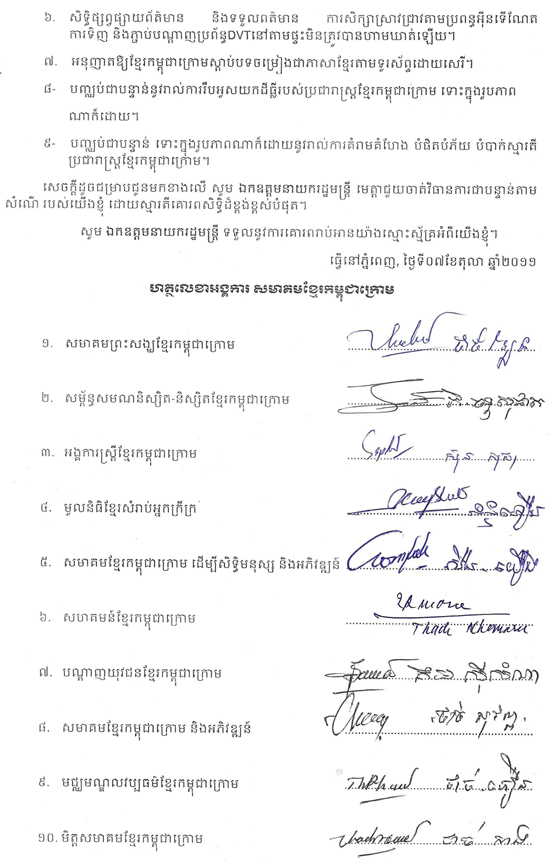 ៦. សិទ្ធិផ្សព្វផ្សាយព័ត៌មាន និងទទួលពតិមាន ការសិក្សាស្រាវជ្រាវតាមប្រពន្ធអ៊ីនទើណែត
ការទិញ និងភ្ជាប់បណ្តាញប្រព័ន្ធDVTនៅតាមផ្ទះមិនត្រូវបានហាមឃាត់ឡើយ។
៧. អនុញាតឱ្យខ្មែរកម្ពុជាក្រោមស្តាប់បទចម្រៀងជាភាសាខ្មែរតាមទូរស័ព្ទដោយសេរី។
៨- បញ្ឈប់ជាបន្ទាន់នូវរាល់ការរឹបអូសយកដីធ្លីរបស់ប្រជារាស្ត្រខ្មែរកម្ពុជាក្រោម ទោះក្នុងរូបភាព
ណាក៏ដោយ។
៩- បញ្ឈប់ជាបន្ទាន់ ទោះក្នុងរូបភាពណាក៏ដោយនូវរាល់ការគំរាមគំហែង បំផិតបំភ័យ បំបាក់ស្មារតី
ប្រជារាស្ត្រខ្មែរកម្ពុជាក្រោម។
សេចក្តីដូចជម្រាបជូនមកខាងលើ សូម ឯកឧត្តមនាយករដ្ឋមន្ត្រី មេត្តាជួយចាត់វិធានការជាបន្ទាន់តាម
សំណើ របស់យើងខ្ញុំ ដោយស្មារតីគោរពសិទ្ធិដ៏ខ្ពង់ខ្ពស់បំផុត។
សូម ឯកឧត្តមនាយករដ្ឋមន្ត្រី ទទួលនូវការគោរពរាប់អានយ៉ាងស្មោះស្ម័គ្រអំពីយើងខ្ញុំ។
ធ្វើនៅភ្នំពេញ, ថ្ងៃទី០៧ខែតុលា ឆ្នាំ២០១១
ហត្ថលេខាអង្គការ សមាគមខ្មែរកម្ពុជាក្រោម
១. សមាគមព្រះសង្ឃខ្មែរកម្ពុជាក្រោម
២. សម្ព័ន្ធសមណនិស្សិត-និស្សិតខ្មែរកម្ពុជាក្រោម
៣. អង្គការស្ត្រីខ្មែរកម្ពុជាក្រោម
៤. មូលនិធិខ្មែរសំរាប់អ្នកក្រីក្រ
៥. សមាគមខ្មែរកម្ពុជាក្រោម ដើម្បីសិទ្ធិមនុស្ស និងអភិវឌ្ឍន៍
៦. សហគមន៍ខ្មែរកម្ពុជាក្រោម
៧. បណ្តាញយុវជនខ្មែរកម្ពុជាក្រោម
៨. សមាគមខ្មែរកម្ពុជាក្រោម និងអភិវឌ្ឍន៍
៩. មជ្ឈមណ្ឌលវប្បធម៌ខ្មែរកម្ពុជាក្រោម
១០. មិត្តសមាគមខ្មែរកម្ពុជាក្រោម